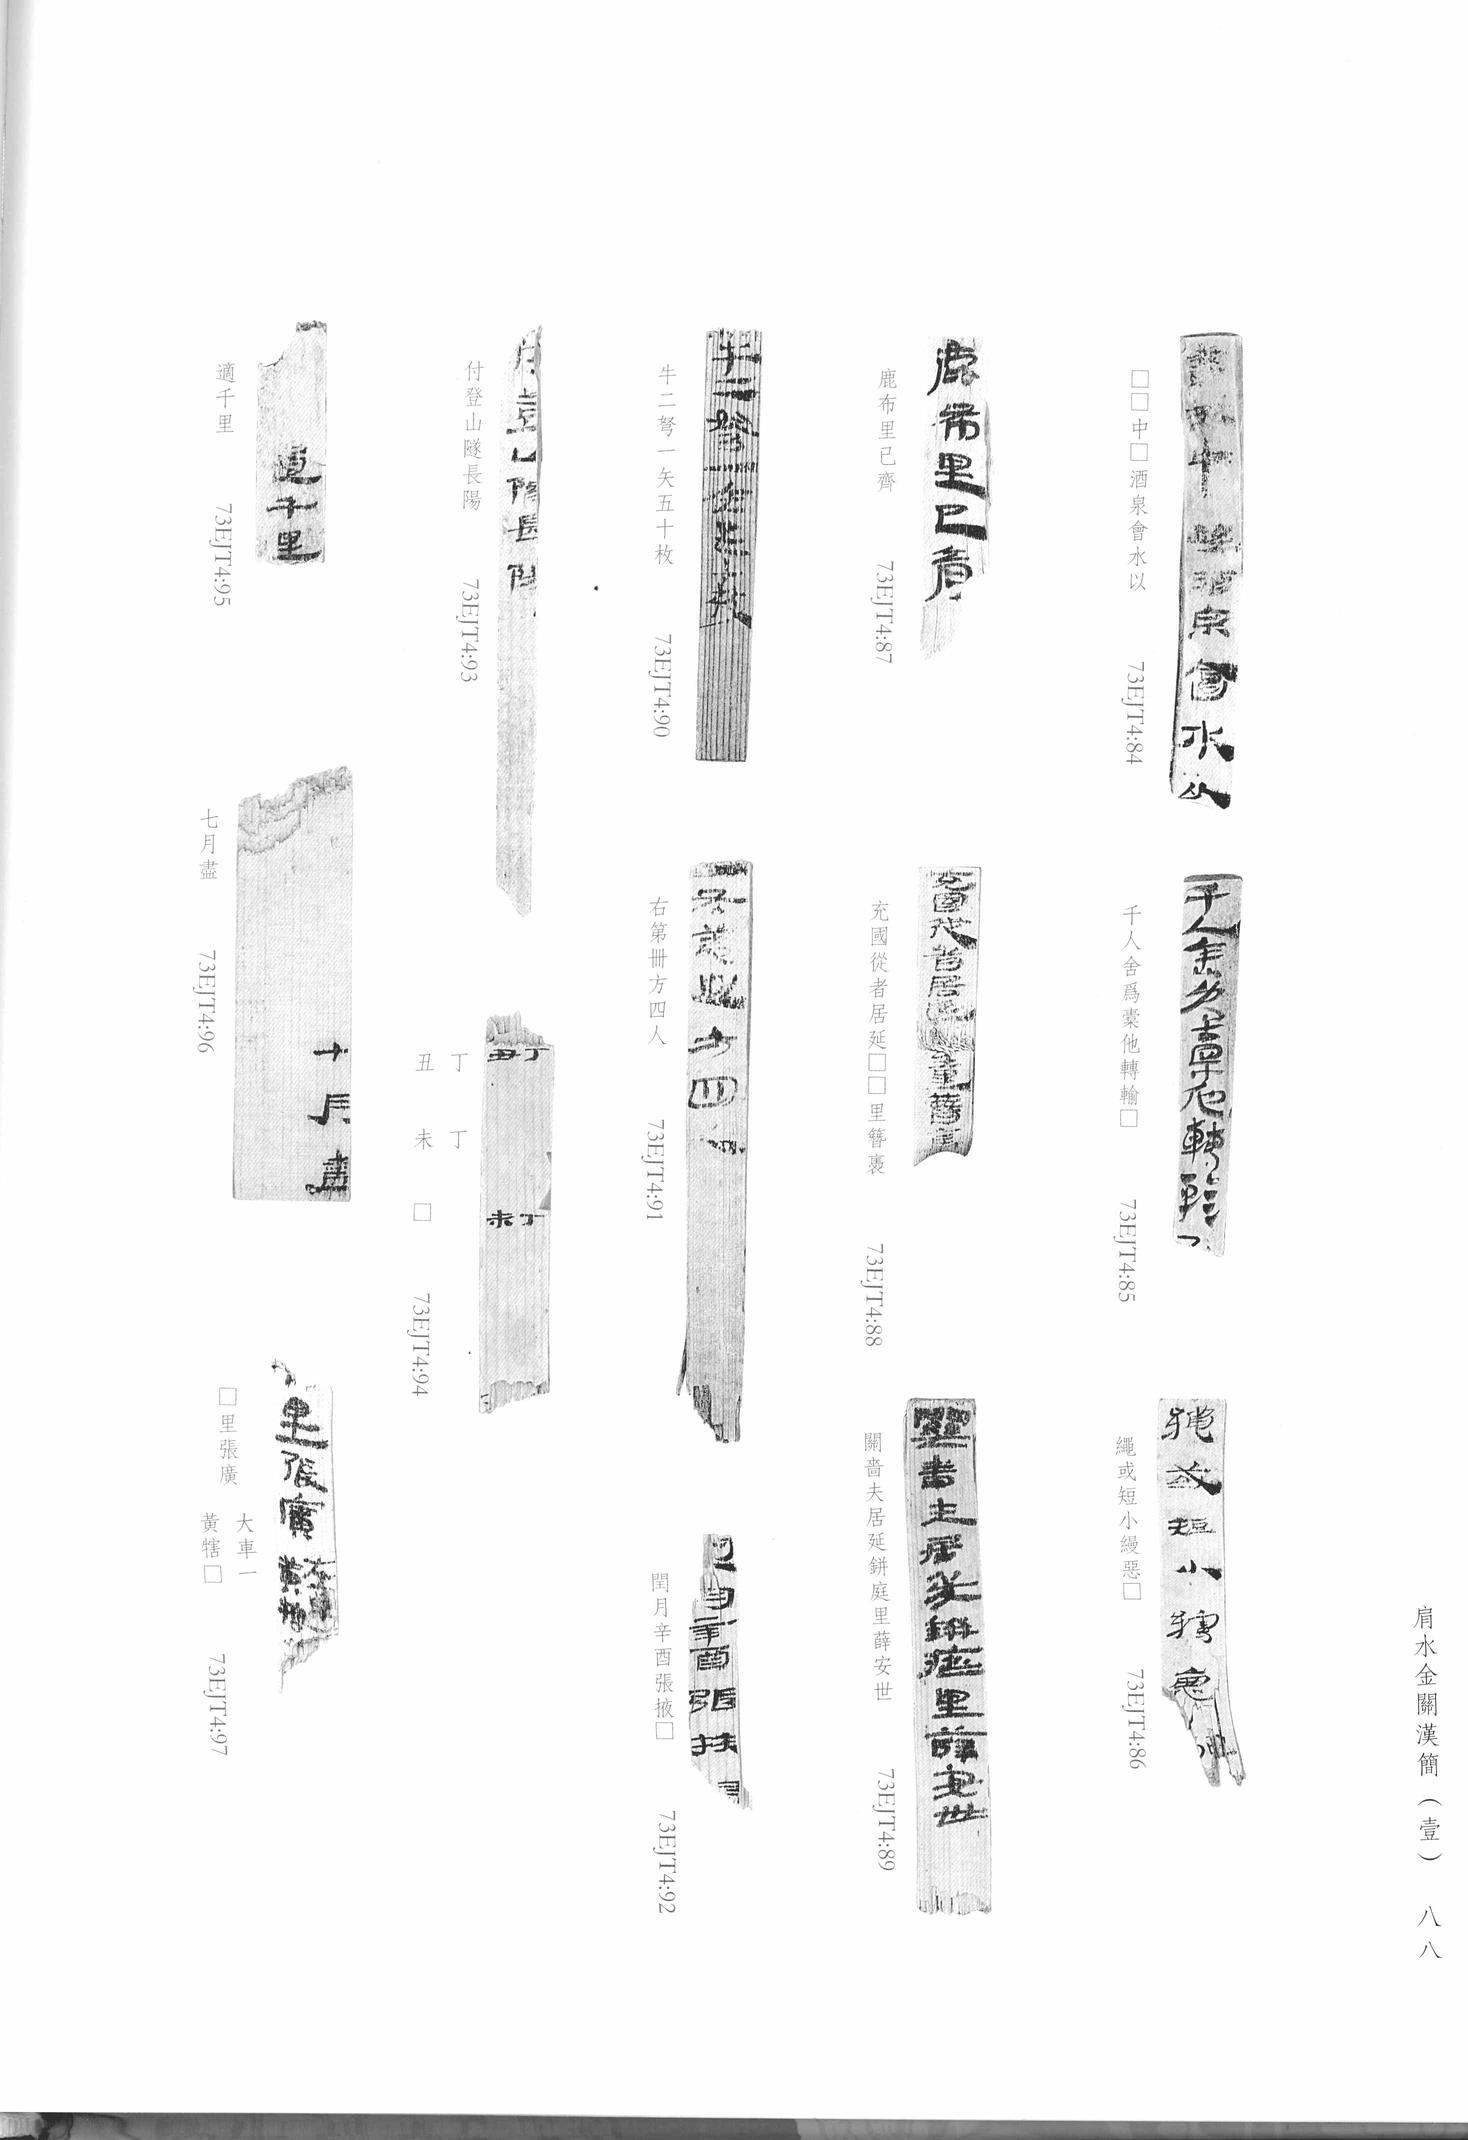 肩水金關漢簡（壹）　八八
□□中□酒泉會水以　73EJT4:84
千人舍爲橐他轉輸□　73EJT4:85
繩或短小縵惡□　73EJT4:86
鹿布里已齊　73EJT4:87
充國從者居延□□里簪褭　73EJT4:88
關嗇夫居延鉼庭里薛安世　73EJT4:89
牛二弩一矢五十枚　73EJT4:90
右第卌方四人　73EJT4:91
閏月辛酉張掖□　73EJT4:92
付登山隧長陽　73EJT4:93
丁　丁
丑　未　□　73EJT4:94
適千里　73EJT4:95
七月盡　73EJT4:96
□里張廣　大車一
黃犗□　73EJT4:97